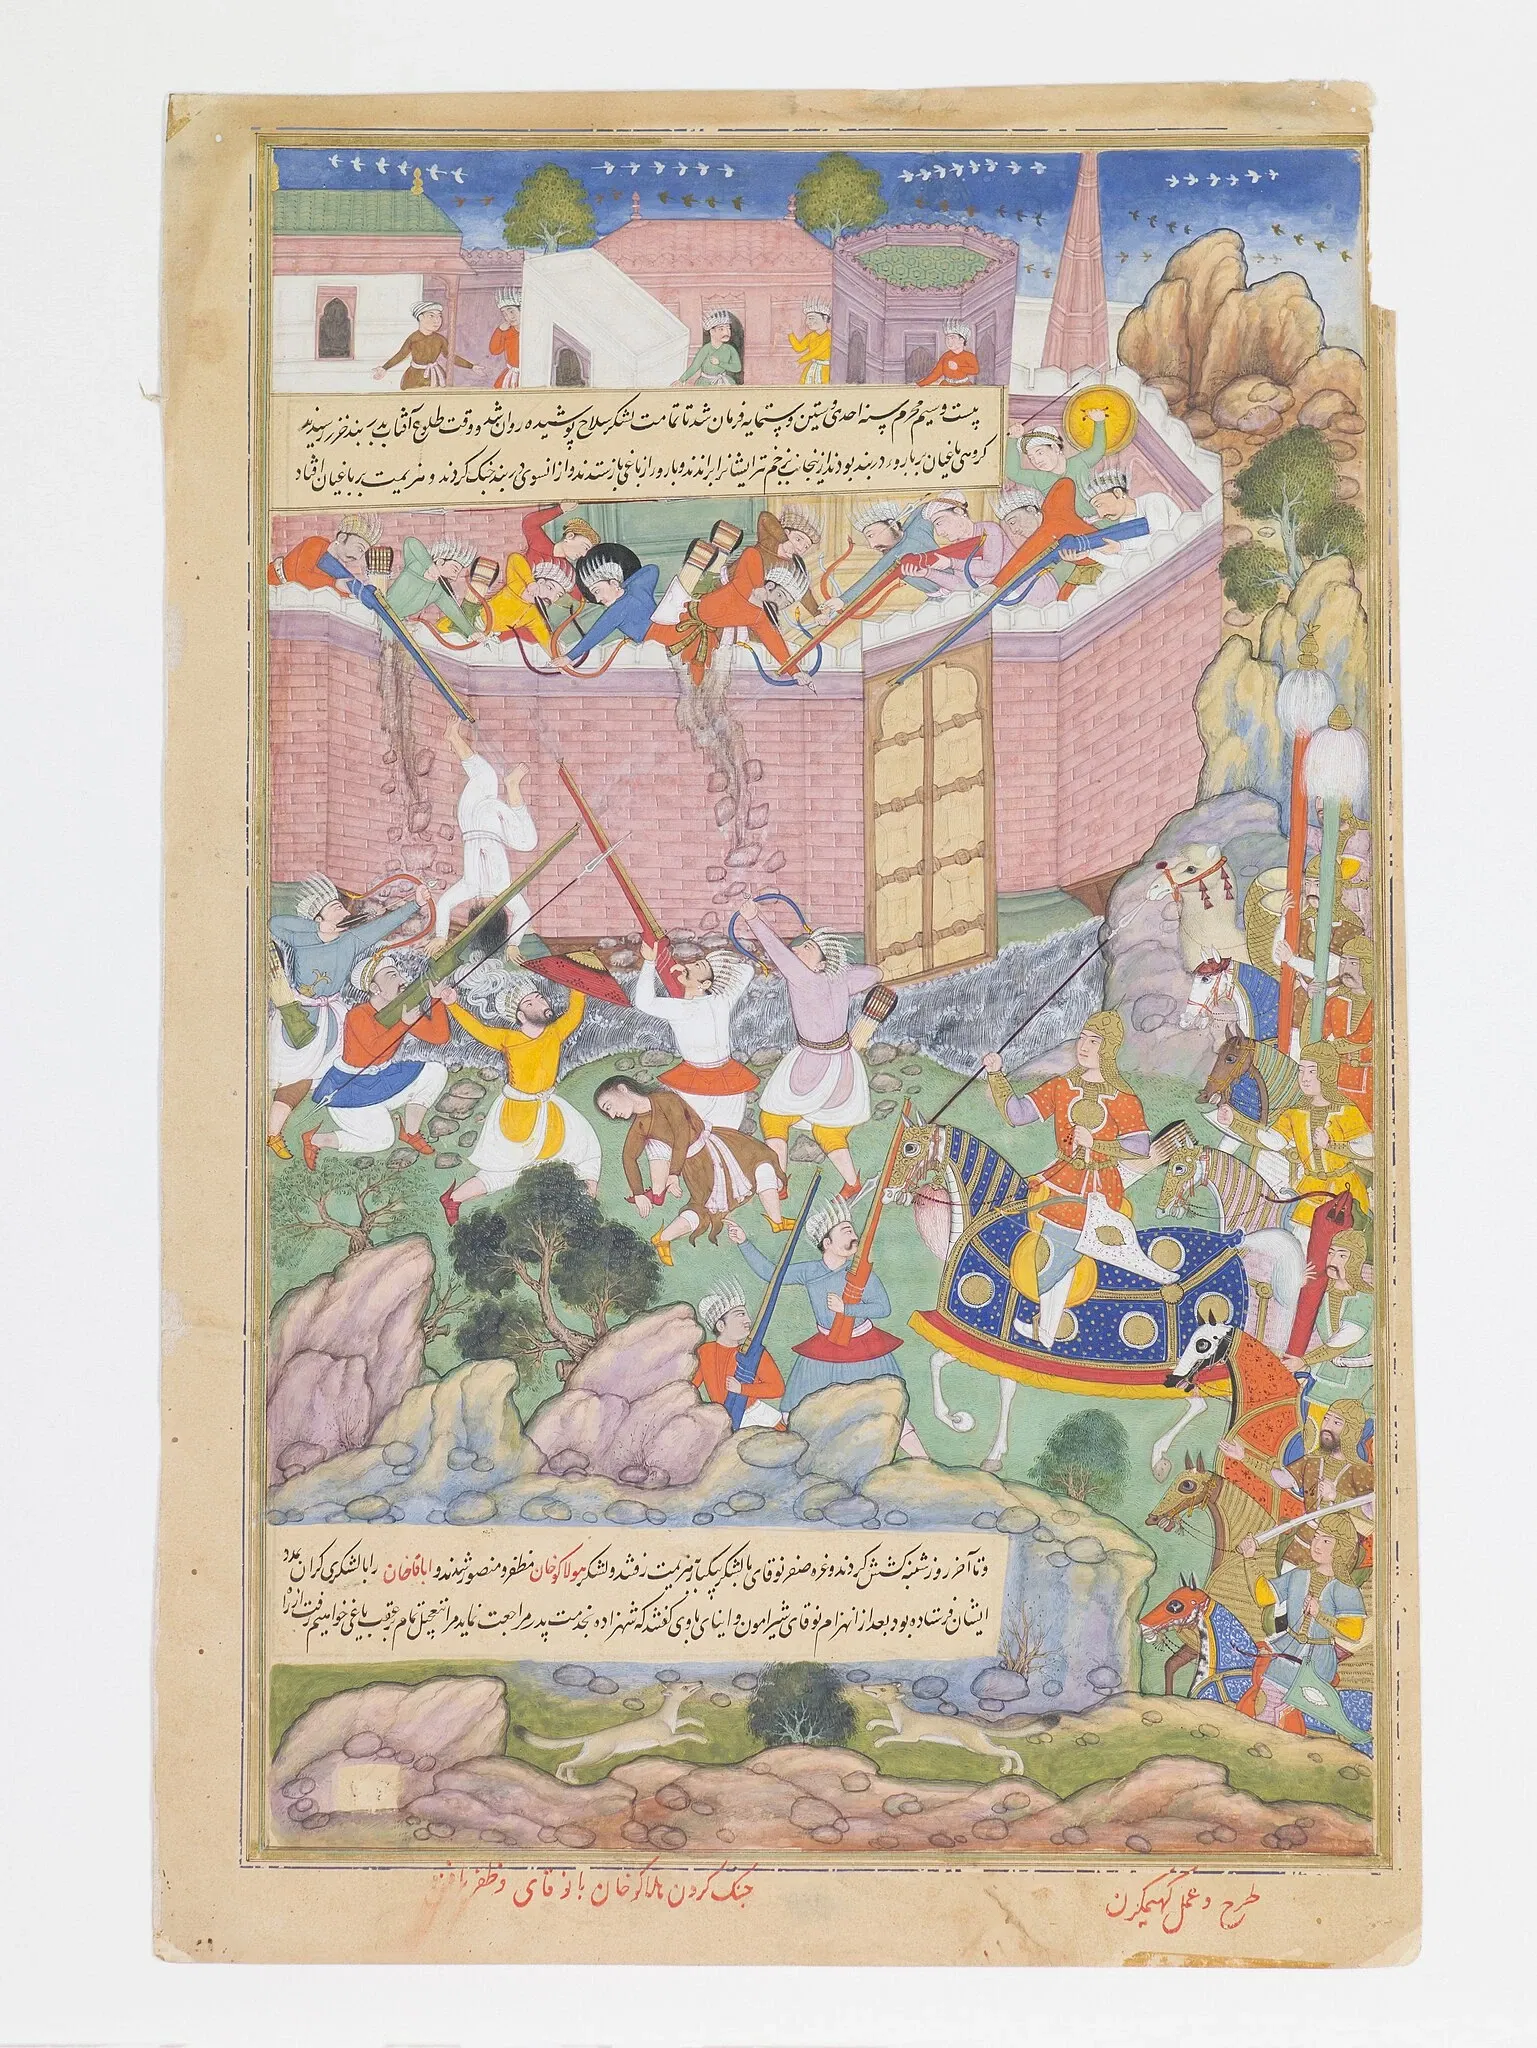 بیست و سیم محرم سنه احدی و ستین و ستمایه فرمان شد تا تمامت لشکر سلاح پوشیده روان شد و وقت طلوع آفتاب بدربند خزر رسیدند
کروهی یاغیان بر باروی دربند بودند از ینجانب بزخم تیر ایشانرا براندند و بارو را از یاغی بازستدند و از انسوی دربند جنک کردند و هزیمت بر یاغیان افتاد
و تا آخر روز شنبه کشش کردند و غره صفر نوقای با لشکر بیکبار بهزیمت رفتند و لشکر هولاکوخان مظفر و منصور شدند و اباقاخان را با لشکری کران بمدد
ایشان فرستاده بود بعد از انهزام نوقای شیرامون و ابتای با وی کفتند که شهزاده بخدمت پدر مراجعت نماید ما بتعجیل تمام بر عقب یاغی خواهیم رفت
جنک کردن هلاکوخان با نوقای و ظفر یافتن
طرح و عمل کهیمکرن